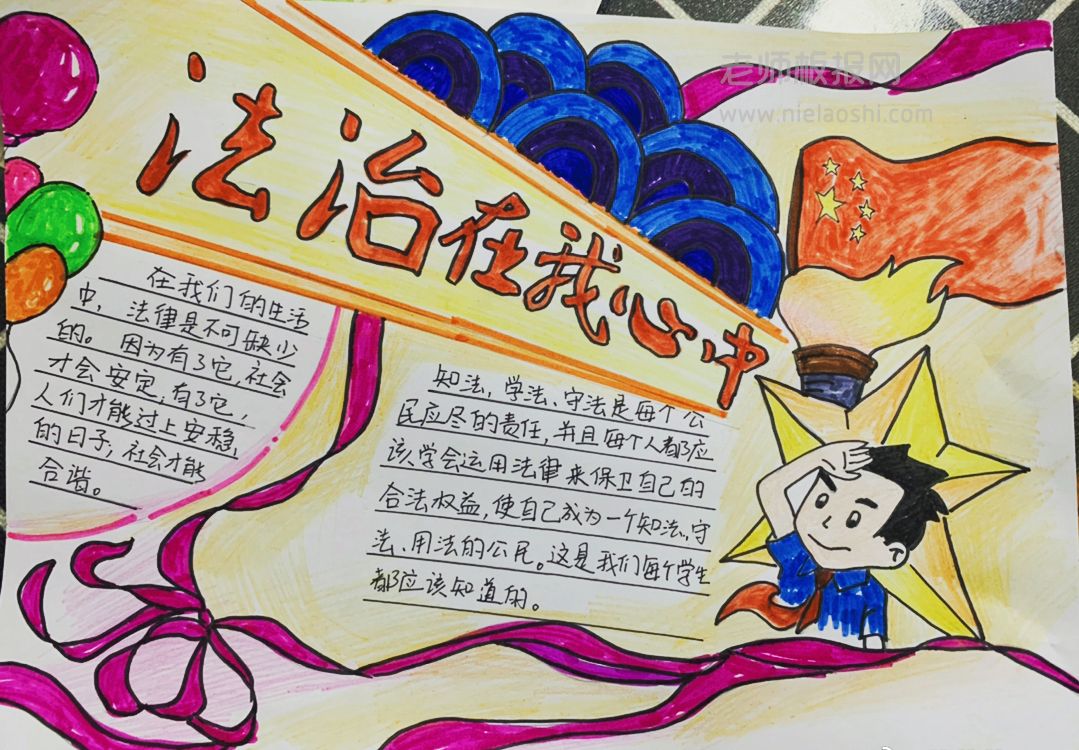 老师板报网
www.nielaoshi.com
法治在我心中
在我们的生活
中，法律是不可缺少
的。因为有了它，社会
才会安定；有了它，
人们才能过上安稳
的日子，社会才能
合谐。
知法、学法、守法是每个公
民应尽的责任，并且每个人都应
该学会运用法律来保卫自己的
合法权益，使自己成为一个知法、守
法、用法的公民。这是我们每个学生
都应该知道的。